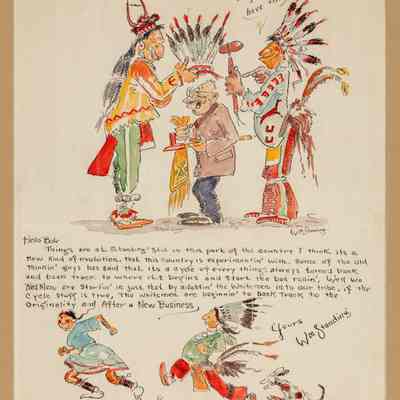 have
Wm Standing
Hello Bob
Things are at standing still in this part of the country I think its a
new kind of evolution, that this country is experimentin' with. Some of the old
thinkin' guys has said that its a cycle of every thing always turned back
and back track to where it begins and start the ball rollin', Well we
Red Men are startin' in just that by adoptin' the whitemen into our tribe, if the
Cycle stuff is true, The whitemen are beginnin' to Back Track to the
Originality and After a New Business
Yours
Wm Standing